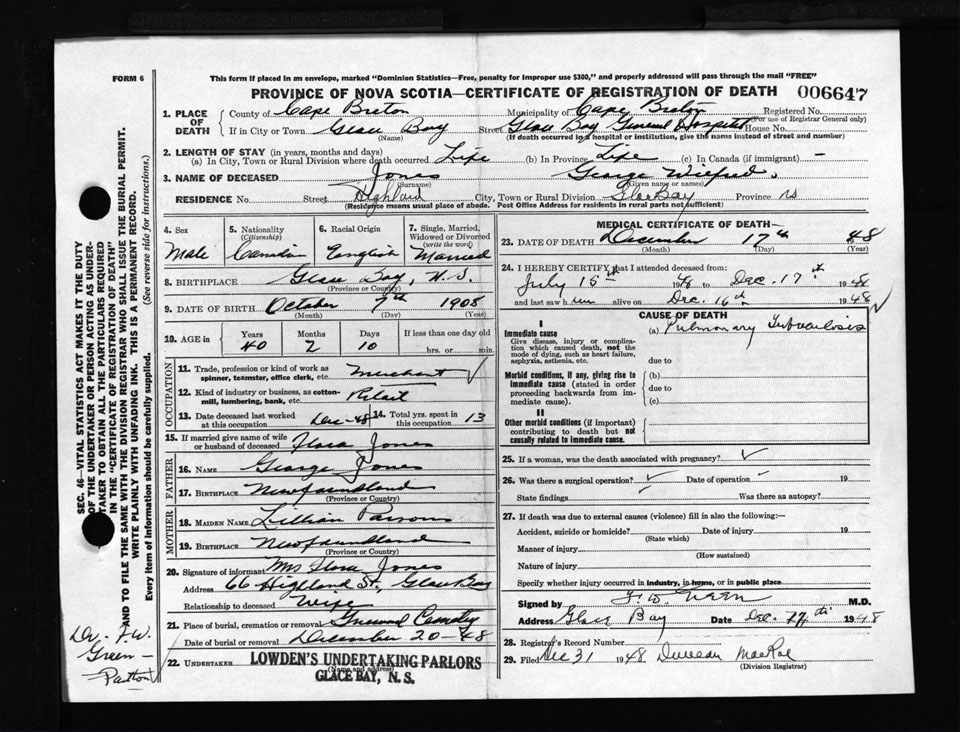 FORM 6
This form if placed in an envelope, marked "Dominion Statistics—Free, penalty for improper use $300," and properly addressed will pass through the mail "FREE"
PROVINCE OF NOVA SCOTIA—CERTIFICATE OF REGISTRATION OF DEATH 006647
1. PLACE OF DEATH
County of Cape Breton Municipality of Cape Breton Registered No.
(For use of Registrar General only)
If in City or Town Glace Bay Street Glace Bay General Hospital House No.
(Name) (If death occurred in a hospital or institution, give the name instead of street and number)
2. LENGTH OF STAY (in years, months and days)
(a) In City, Town or Rural Division where death occurred Life (b) In Province Life (c) In Canada (if immigrant) —
3. NAME OF DECEASED Jones George Wilfred
(Surname) (Given name or names)
RESIDENCE No. Street Highland City, Town or Rural Division Glace Bay Province NS
(Residence means usual place of abode. Post Office Address for residents in rural parts not sufficient)
4. Sex Male
5. Nationality (Citizenship) Canadian
6. Racial Origin English
7. Single, Married, Widowed or Divorced (write the word) Married
8. BIRTHPLACE Glace Bay, N.S.
(Province or County)
9. DATE OF BIRTH October 7th 1908
(Month) (Day) (Year)
10. AGE in Years Months Days If less than one day old
40 2 10 hrs. or min.
OCCUPATION
11. Trade, profession or kind of work as spinner, teamster, office clerk, etc. Merchant
12. Kind of industry or business, as cotton-mill, lumbering, bank, etc. Retail
13. Date deceased last worked at this occupation Dec-48
14. Total yrs. spent in this occupation 13
15. If married give name of wife or husband of deceased Flora Jones
FATHER
16. NAME George Jones
17. BIRTHPLACE Newfoundland
(Province or Country)
MOTHER
18. MAIDEN NAME Lillian Parsons
19. BIRTHPLACE Newfoundland
(Province or Country)
20. Signature of informant Mrs Flora Jones
Address 66 Highland St., Glace Bay
Relationship to deceased Wife
21. Place of burial, cremation or removal Greenwood Cemetry
Date of burial or removal December 20-48
22. UNDERTAKER LOWDEN'S UNDERTAKING PARLORS
(Name and address)
GLACE BAY, N. S.
MEDICAL CERTIFICATE OF DEATH
23. DATE OF DEATH December 17th 48
(Month) (Day) (Year)
24. I HEREBY CERTIFY that I attended deceased from:
July 15th 1948 to Dec. 17th 1948
and last saw him alive on Dec. 16th 1948
CAUSE OF DEATH
I
Immediate cause
Give disease, injury or complication which caused death, not the mode of dying, such as heart failure, asphyxia, asthenia, etc.
(a) Pulmonary Tuberculosis
due to
Morbid conditions, if any, giving rise to immediate cause (stated in order proceeding backwards from immediate cause).
(b)
due to
(c)
II
Other morbid conditions (if important) contributing to death but not causally related to immediate cause.
25. If a woman, was the death associated with pregnancy?
26. Was there a surgical operation? Date of operation 19
State findings Was there autopsy?
27. If death was due to external causes (violence) fill in also the following:—
Accident, suicide or homicide? Date of injury 19
(State which)
Manner of injury
(How sustained)
Nature of injury
Specify whether injury occurred in industry, in home, or in public place
Signed by F. W. Green M.D.
Address Glace Bay Date Dec. 17th 1948
28. Registrar's Record Number
29. Filed Dec 31 1948 Duncan MacRae
(Division Registrar)
SEC. 46—VITAL STATISTICS ACT MAKES IT THE DUTY
OF THE UNDERTAKER OR PERSON ACTING AS UNDER-
TAKER TO OBTAIN ALL THE PARTICULARS REQUIRED
IN THE "CERTIFICATE OF REGISTRATION OF DEATH"
AND TO FILE THE SAME WITH THE DIVISION REGISTRAR WHO SHALL ISSUE THE BURIAL PERMIT.
WRITE PLAINLY WITH UNFADING INK. THIS IS A PERMANENT RECORD.
Every item of information should be carefully supplied. (See reverse side for instructions.)
Dr. F.W.
Green—